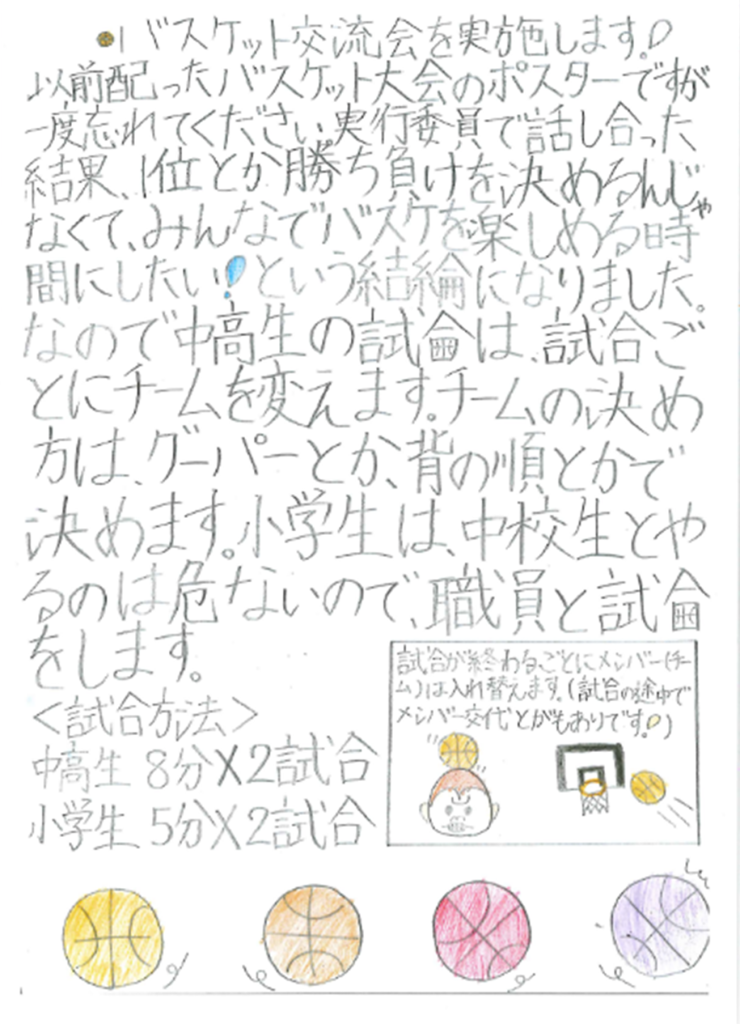 バスケット交流会を実施します。
以前配ったバスケット大会のポスターですが
一度忘れてください。実行委員で話し合った
結果、1位とか勝ち負けを決めるんじゃ
なくて、みんなでバスケを楽しめる時
間にしたい!という結論になりました。
なので中高生の試合は、試合ご
とにチームを変えます。チームの決め
方は、グーパーとか、背の順とかで
決めます。小学生は、中校生とや
るのは危ないので、職員と試合
をします。
<試合方法>
中高生 8分×2試合
小学生 5分×2試合
試合が終わるごとにメンバー(チー
ム)は入れ替えます。(試合の途中で
メンバー交代とかもありです。)